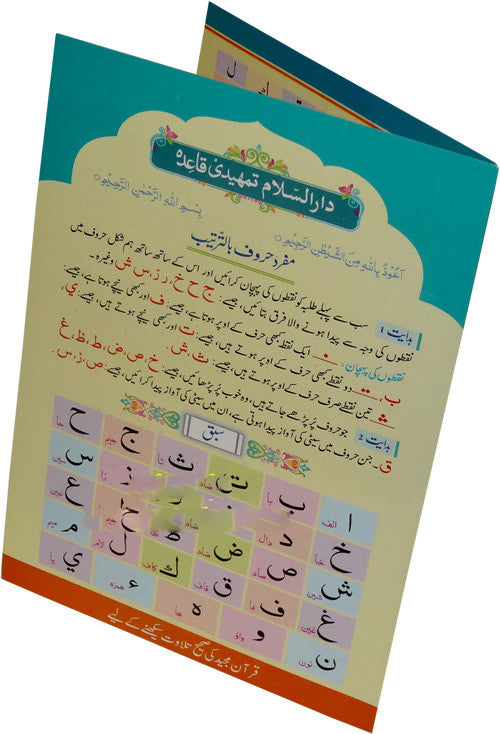 دارالسّلام تمہیدی قاعدہ
اَعُوْذُ بِاللّٰهِ مِنَ الشَّيْطٰنِ الرَّجِيْمِ بِسْمِ اللّٰهِ الرَّحْمٰنِ الرَّحِيْمِ
مفرد حروف بالترتیب
ہدایت 1 سب سے پہلے طلبہ کو نقطوں کی پہچان کرائیں اور اس کے ساتھ ساتھ ہم شکل حروف میں
نقطوں کی وجہ سے پیدا ہونے والا فرق بتائیں، جیسے: ج ح خ، ر ز، س ش وغیرہ۔
نقطوں کی پہچان: ایک نقطہ کبھی حرف کے اوپر ہوتا ہے، جیسے: ف اور کبھی نیچے ہوتا ہے، جیسے:
ب، دو نقطے کبھی حرف کے اوپر ہوتے ہیں، جیسے: ت اور کبھی نیچے ہوتے ہیں، جیسے: ي،
تین نقطے صرف حرف کے اوپر ہوتے ہیں، جیسے: ث، ش۔
ہدایت 2 جو حروف پُر پڑھے جاتے ہیں، وہ خوب پُر پڑھائیں، جیسے: خ، ص، ض، ط، ظ، غ
ق۔ جن حروف میں سیٹی کی آواز پیدا ہوتی ہے، ان میں سیٹی کی آواز پیدا کرائیں، جیسے: ص، ز، س۔
سبق
ا الف ب با ت ث ثا ج جیم ح حا
خ خا د دال ر ز زا س سین
ش شین ص صاد ض ضاد ط ع عین
غ غین ف فا ق قاف ك کاف ل لام م میم
ن نون و واو ه ها ء ھمزہ ي یا
قرآن مجید کی صحیح تلاوت سیکھنے کے لیے
ل